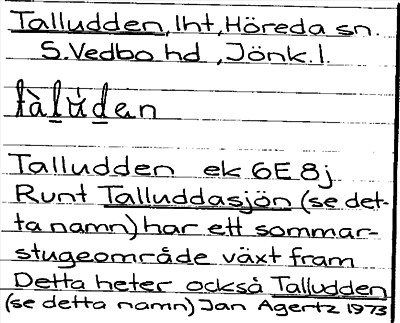 Talludden, lht, Höreda sn.
S. Vedbo hd, Jönk. l.
tàlúden
Talludden ek 6E 8j
Runt Talluddasjön (se det-
ta namn) har ett sommar-
stugeområde växt fram
Detta heter också Talludden
(se detta namn) Jan Agertz 1973